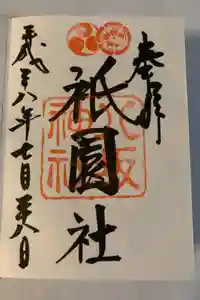 奉拝
祇園社
八坂神社
平成二八年七月二八日